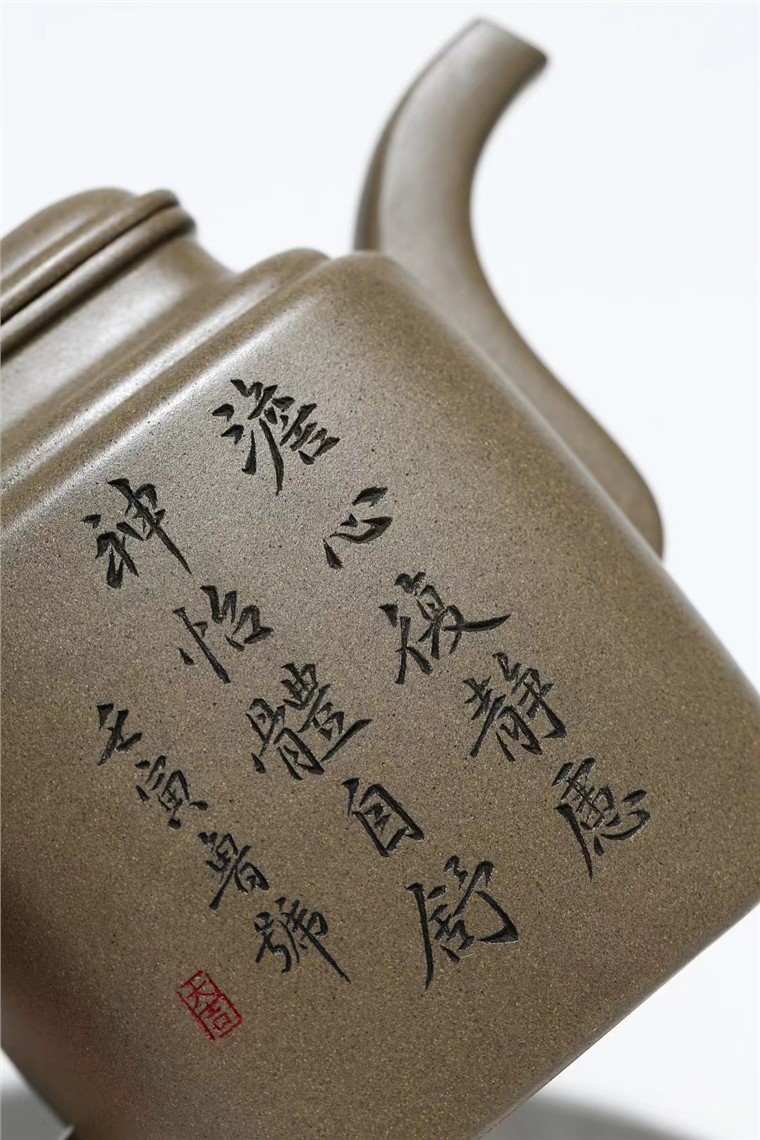 澹心復靜慮
神怡體自舒
壬寅魯號